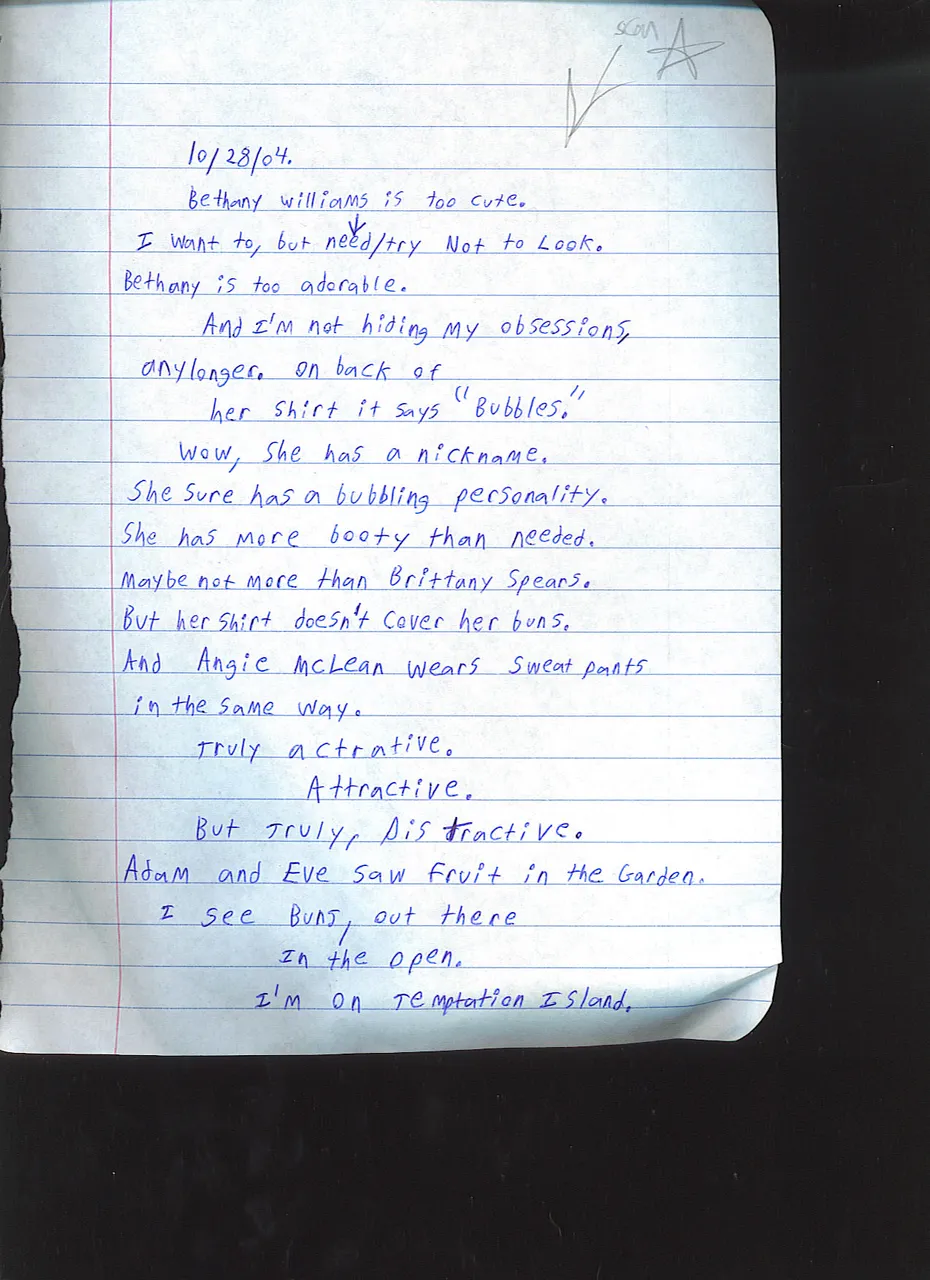 scan
10/28/04.
Bethany williams is too cute.
I want to, but need/try Not to Look.
Bethany is too adorable.
And I'm not hiding my obsessions,
anylonger. on back of
her shirt it says "Bubbles."
Wow, she has a nickname.
She sure has a bubbling personality.
She has more booty than needed.
Maybe not more than Brittany Spears.
But her shirt doesn't cover her buns.
And Angie McLean wears sweat pants
in the same way.
Truly actrative.
Attractive.
But Truly, Distractive.
Adam and Eve saw Fruit in the Garden.
I see Buns, out there
In the open.
I'm on Temptation Island.